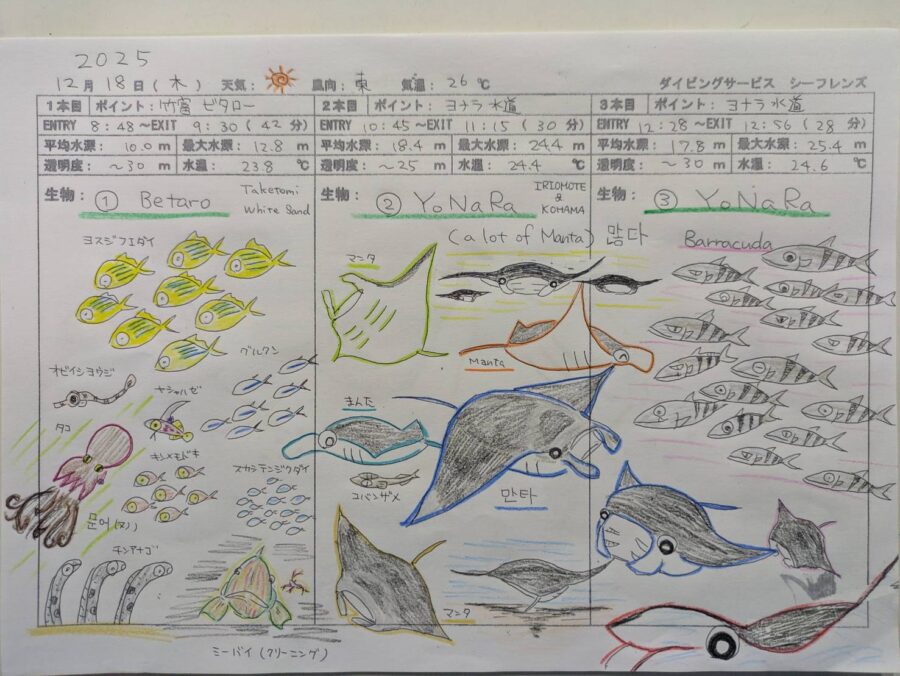 2025
12月 18日 (木) 天気: 風向: 東 気温: 26 ℃ ダイビングサービス シーフレンズ
1本目 ポイント: 竹富 ビタロー
ENTRY 8:48 ~EXIT 9:30 (42 分)
平均水深: 10.0 m 最大水深: 12.8 m
透明度: ~30 m 水温: 23.8 ℃
生物: ① Betaro Taketomi
White Sand
ヨスジフエダイ
グルクン
オビイシヨウジ
ヤシャハゼ
タコ
キンメモドキ
スカシテンジクダイ
문어
チンアナゴ
ミーバイ (クリーニング)
2本目 ポイント: ヨナラ水道
ENTRY 10:45 ~EXIT 11:15 (30 分)
平均水深: 18.4 m 最大水深: 24.4 m
透明度: ~25 m 水温: 24.4 ℃
生物: ② YoNaRa IRIOMOTE
&
KOHAMA
(a lot of Manta) 많다
マンタ
Manta
まんた
コバンザメ
만타
マンタ
3本目 ポイント: ヨナラ水道
ENTRY 12:28 ~EXIT 12:56 (28 分)
平均水深: 17.8 m 最大水深: 25.4 m
透明度: ~30 m 水温: 24.6 ℃
生物: ③ YoNaRa
Barracuda